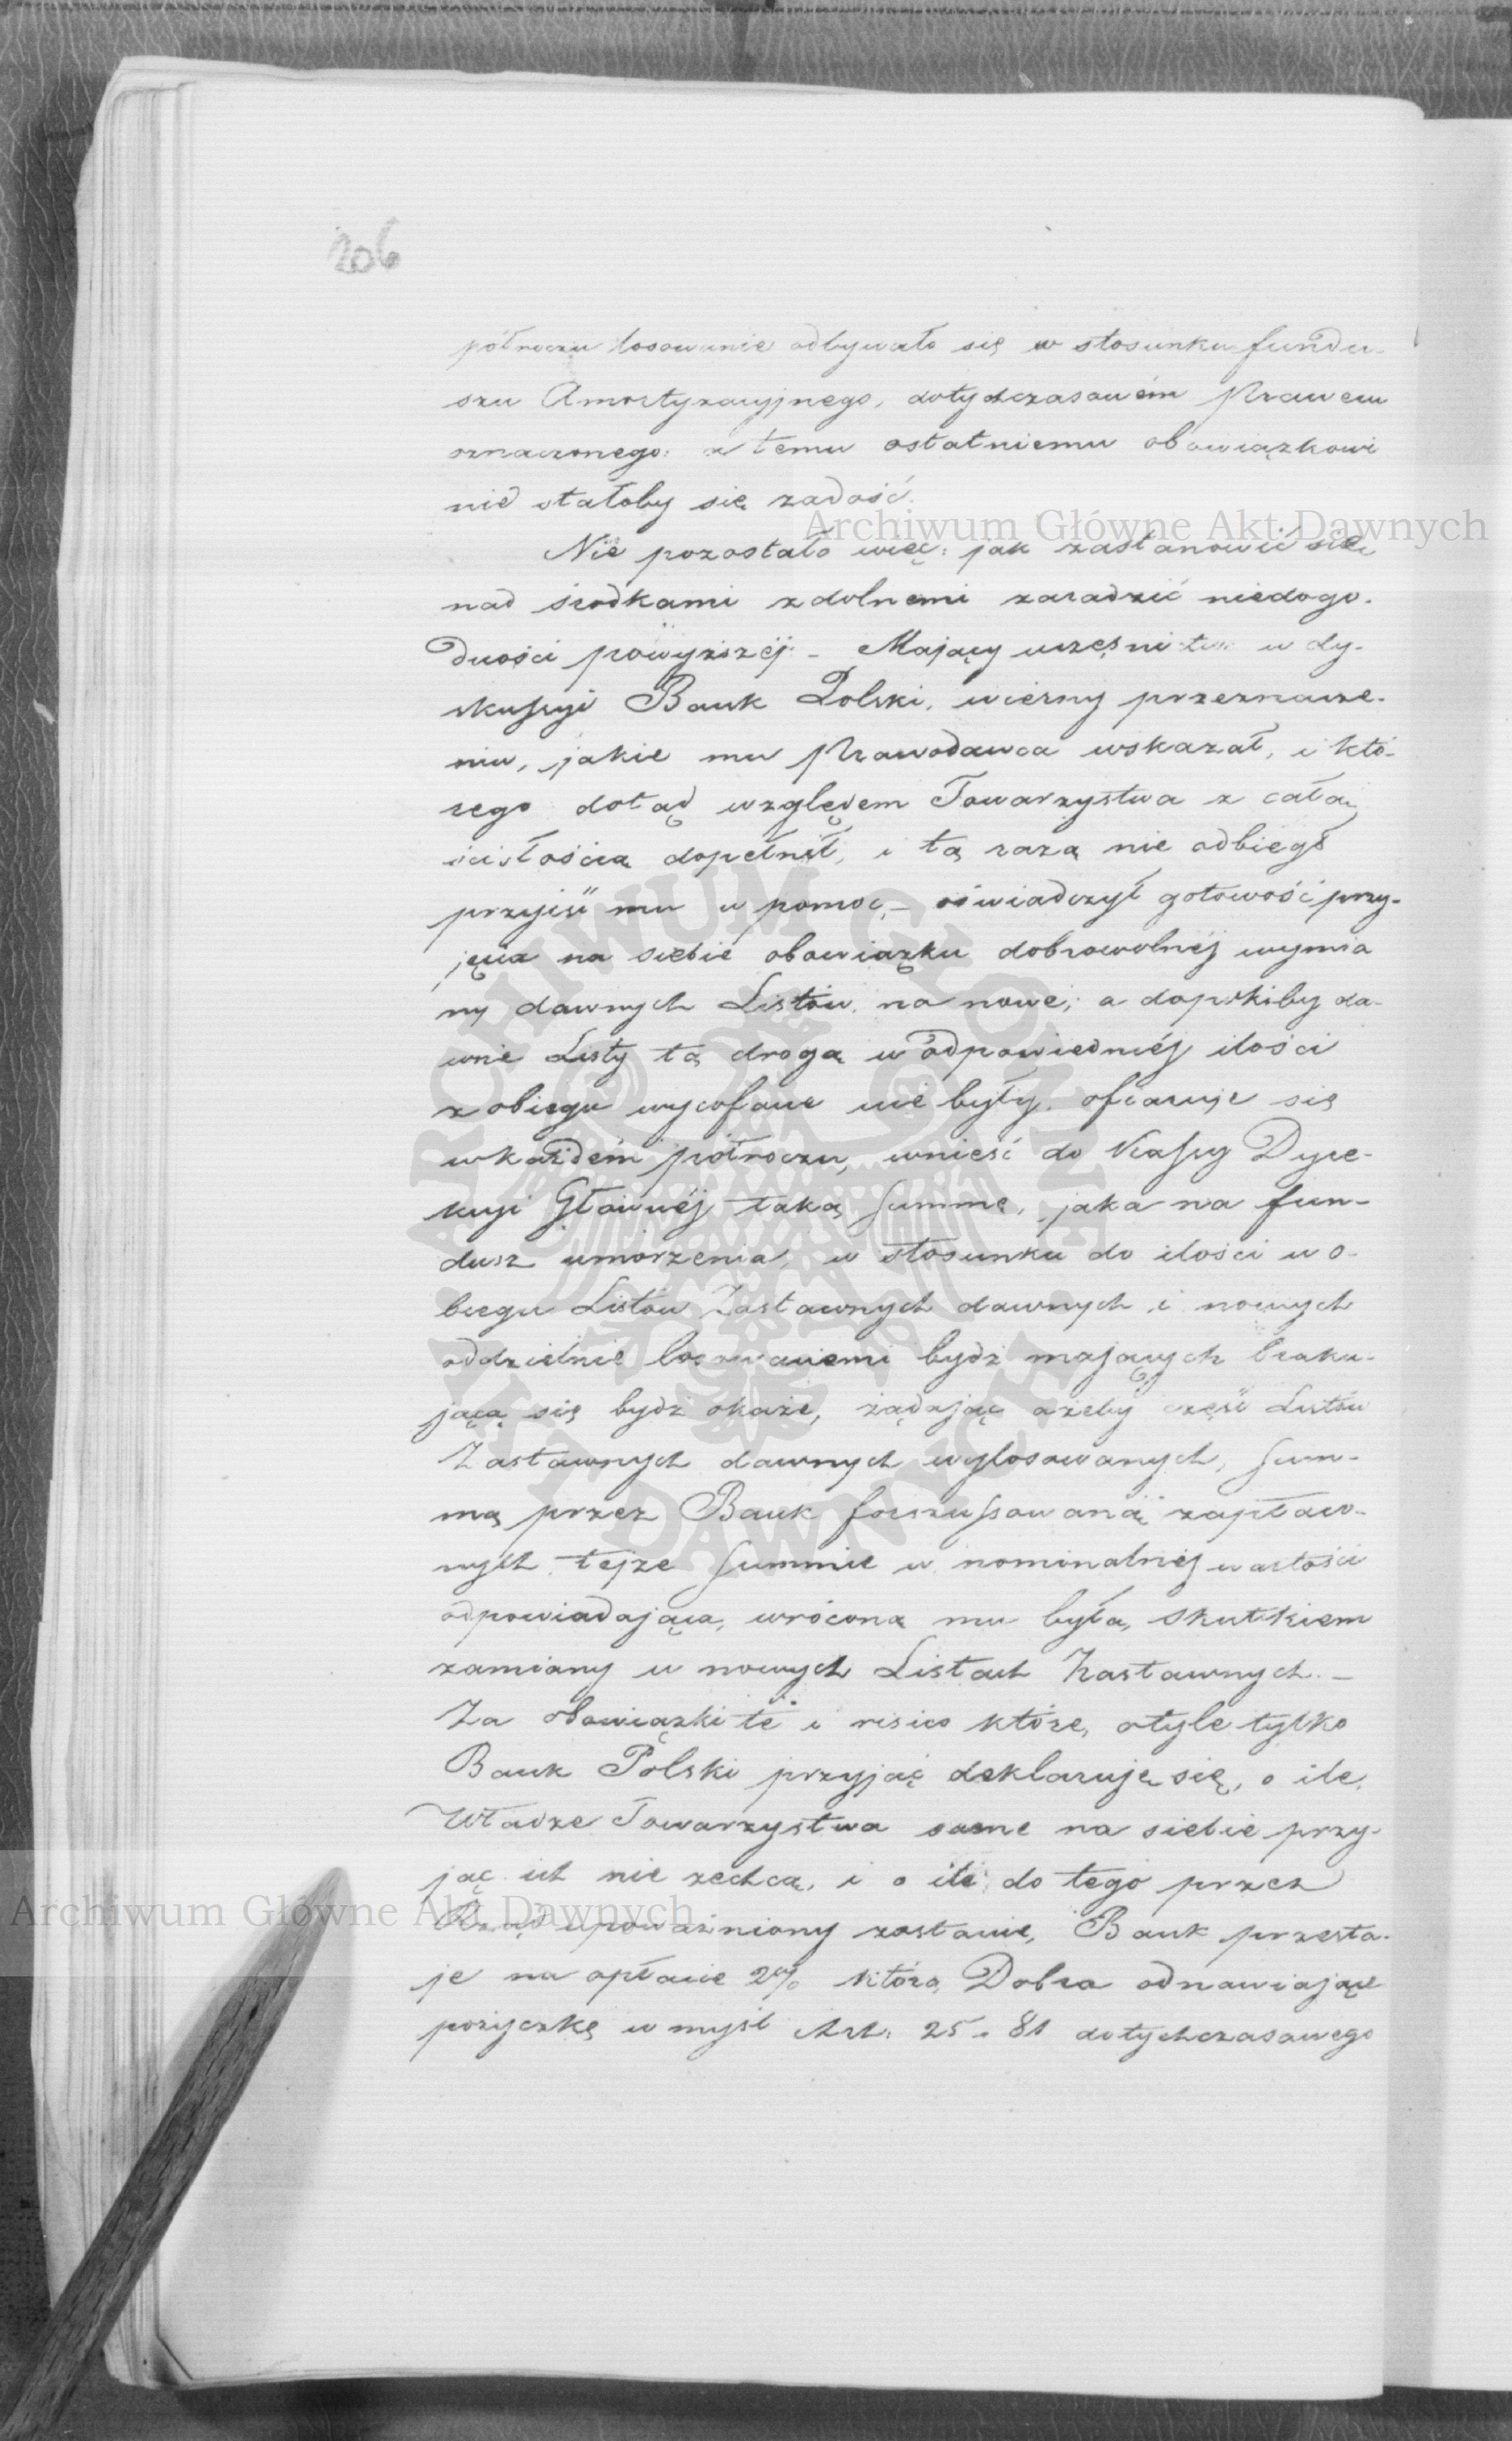 206
półroczu losowanie odbywało się w stosunku fundu-
szu Amortyzacyjnego, dotychczasowém Prawem
oznaczonego: a temu ostatniemu obowiązkowi
nie stałoby się zadość.
Archiwum Główne Akt Dawnych
Nie pozostało więc: jak zastanowić się
nad środkami zdolnemi zaradzić niedogo-
dności powyższéj. – Mający uczęsnictwo w dy-
skussyi Bank Polski, wierny przeznacze-
niu, jakie mu Prawodawca wskazał, i któ-
rego dotąd względem Towarzystwa z całą
ścisłością dopełnił, i tą razą nie odbiegł
przyjść mu w pomoc, – oświadczył gotowość przy-
jęcia na siebie obowiązku dobrowolnéj wymia
ny dawnych Listów na nowe; a dopókiby da-
wne Listy tą drogą w odpowiedniéj ilości
z obiegu wycofane nie były, ofiaruje się
w każdém półroczu, wnieść do Kassy Dyre-
kcyi Głównéj taką summę, jaka na fun-
dusz umorzenia, w stosunku do ilości w o-
biegu Listów Zastawnych dawnych i nowych
oddzielnie losowaniemi bydź mających braku-
jącą się bydź okaże, żądając ażeby część Listów
Zastawnych dawnych wylosowanych, sum-
mą przez Bank forszussowaną zapłaco-
nych tejże summie w nominalnéj wartości
odpowiadająca, wróconą mu była, skutkiem
zamiany w nowych Listach Zastawnych. –
Za obowiązki te i risico które, o tyle tylko
Bank Polski przyjąć deklaruje się, o ile
Władze Towarzystwa same na siebie przy-
jąć ich nie zechcą, i o ile do tego przez
Archiwum Główne Akt Dawnych
Rząd upoważniony zostanie, Bank przesta-
je na opłacie 2% którą Dobra odnawiające
pożyczkę w myśl Art: 25 i 81 dotychczasowego
ARCHIWUM GŁÓWNE AKT DAWNYCH